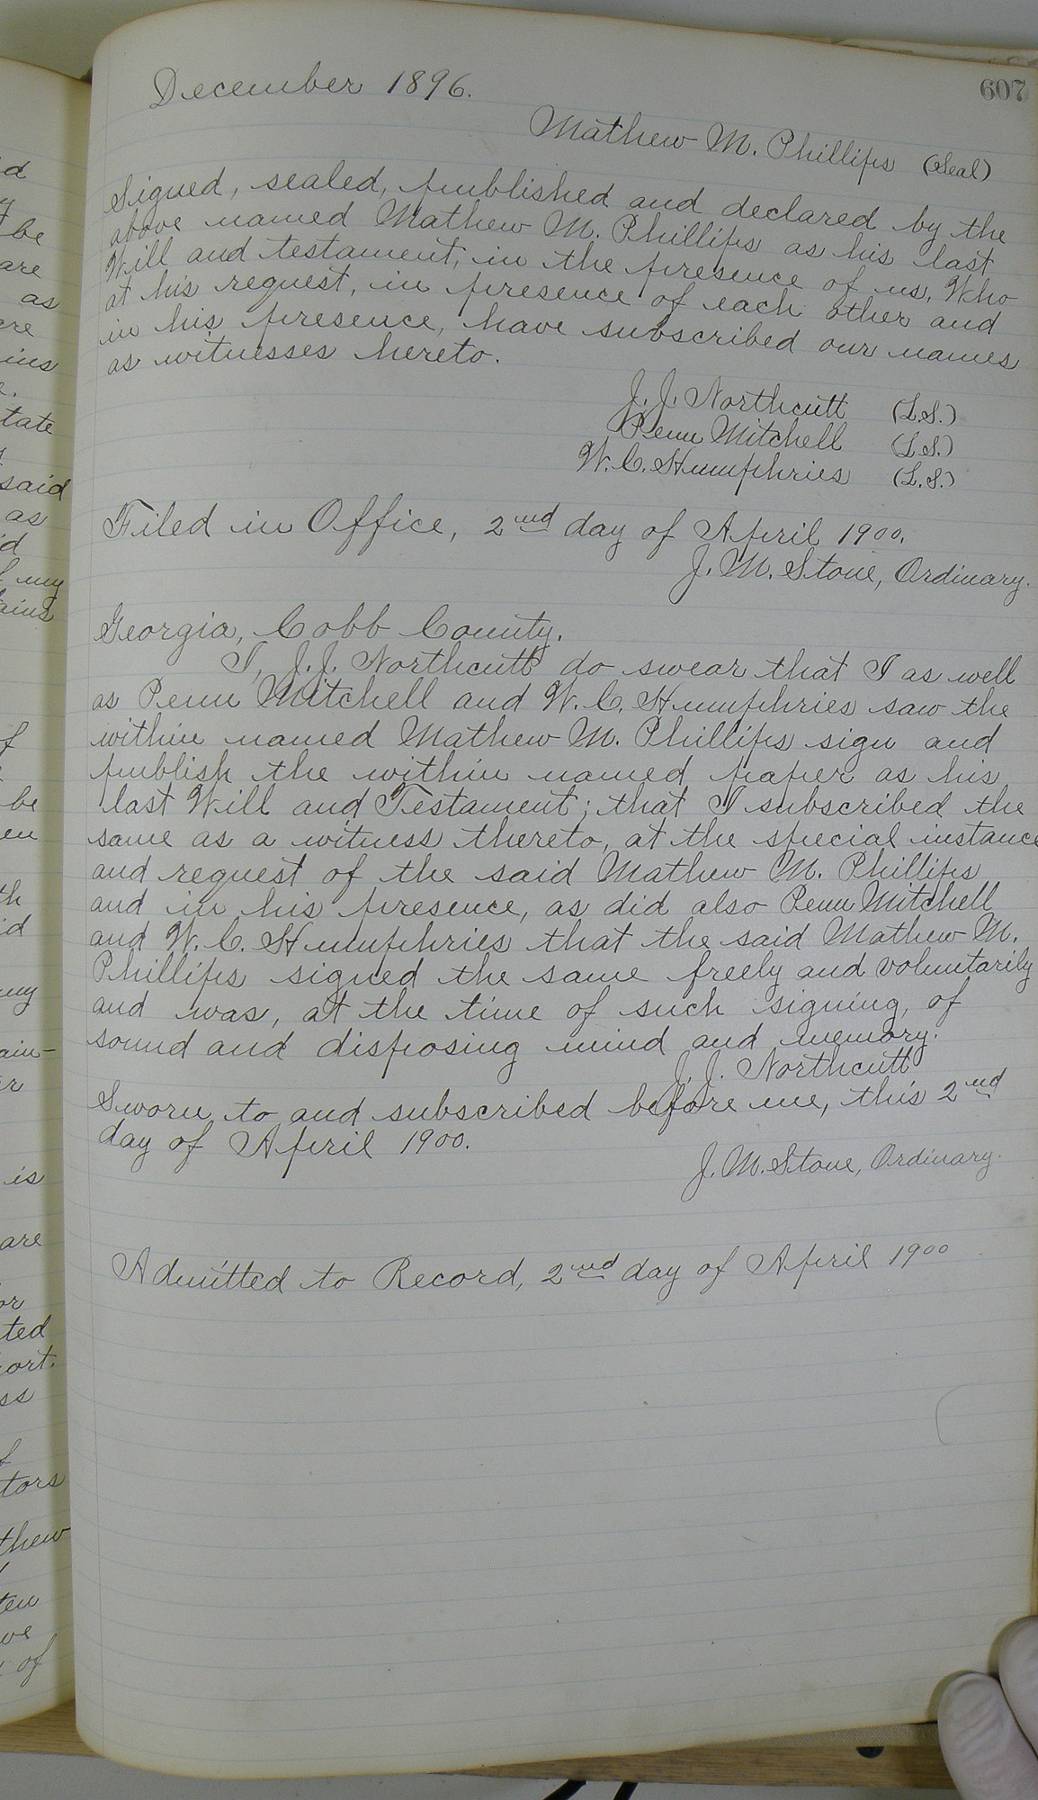 607
December 1896.
Mathew M. Phillips (Seal)
Signed, sealed, published and declared by the
above named Mathew M. Phillips as his last
Will and testament; in the presence of us, Who
at his request, in presence of each other and
in his presence, have subscribed our names
as witnesses hereto.
J. J. Northcutt (L.S.)
Penn Mitchell (L.S.)
W. C. Humphries (L.S.)
Filed in Office, 2nd day of April 1900.
J. M. Stone, Ordinary.
Georgia, Cobb County.
I, J. J. Northcutt do swear that I as well
as Penn Mitchell and W. C. Humphries saw the
within named Mathew M. Phillips sign and
publish the within named paper as his
last Will and Testament; that I subscribed the
same as a witness thereto, at the special instance
and request of the said Mathew M. Phillips
and in his presence, as did also Penn Mitchell
and W. C. Humphries that the said Mathew M.
Phillips signed the same freely and voluntarily
and was, at the time of such signing, of
sound and disposing mind and memory.
J. J. Northcutt
Sworn to and subscribed before me, this 2nd
day of April 1900.
J. M. Stone, Ordinary.
Admitted to Record, 2nd day of April 1900